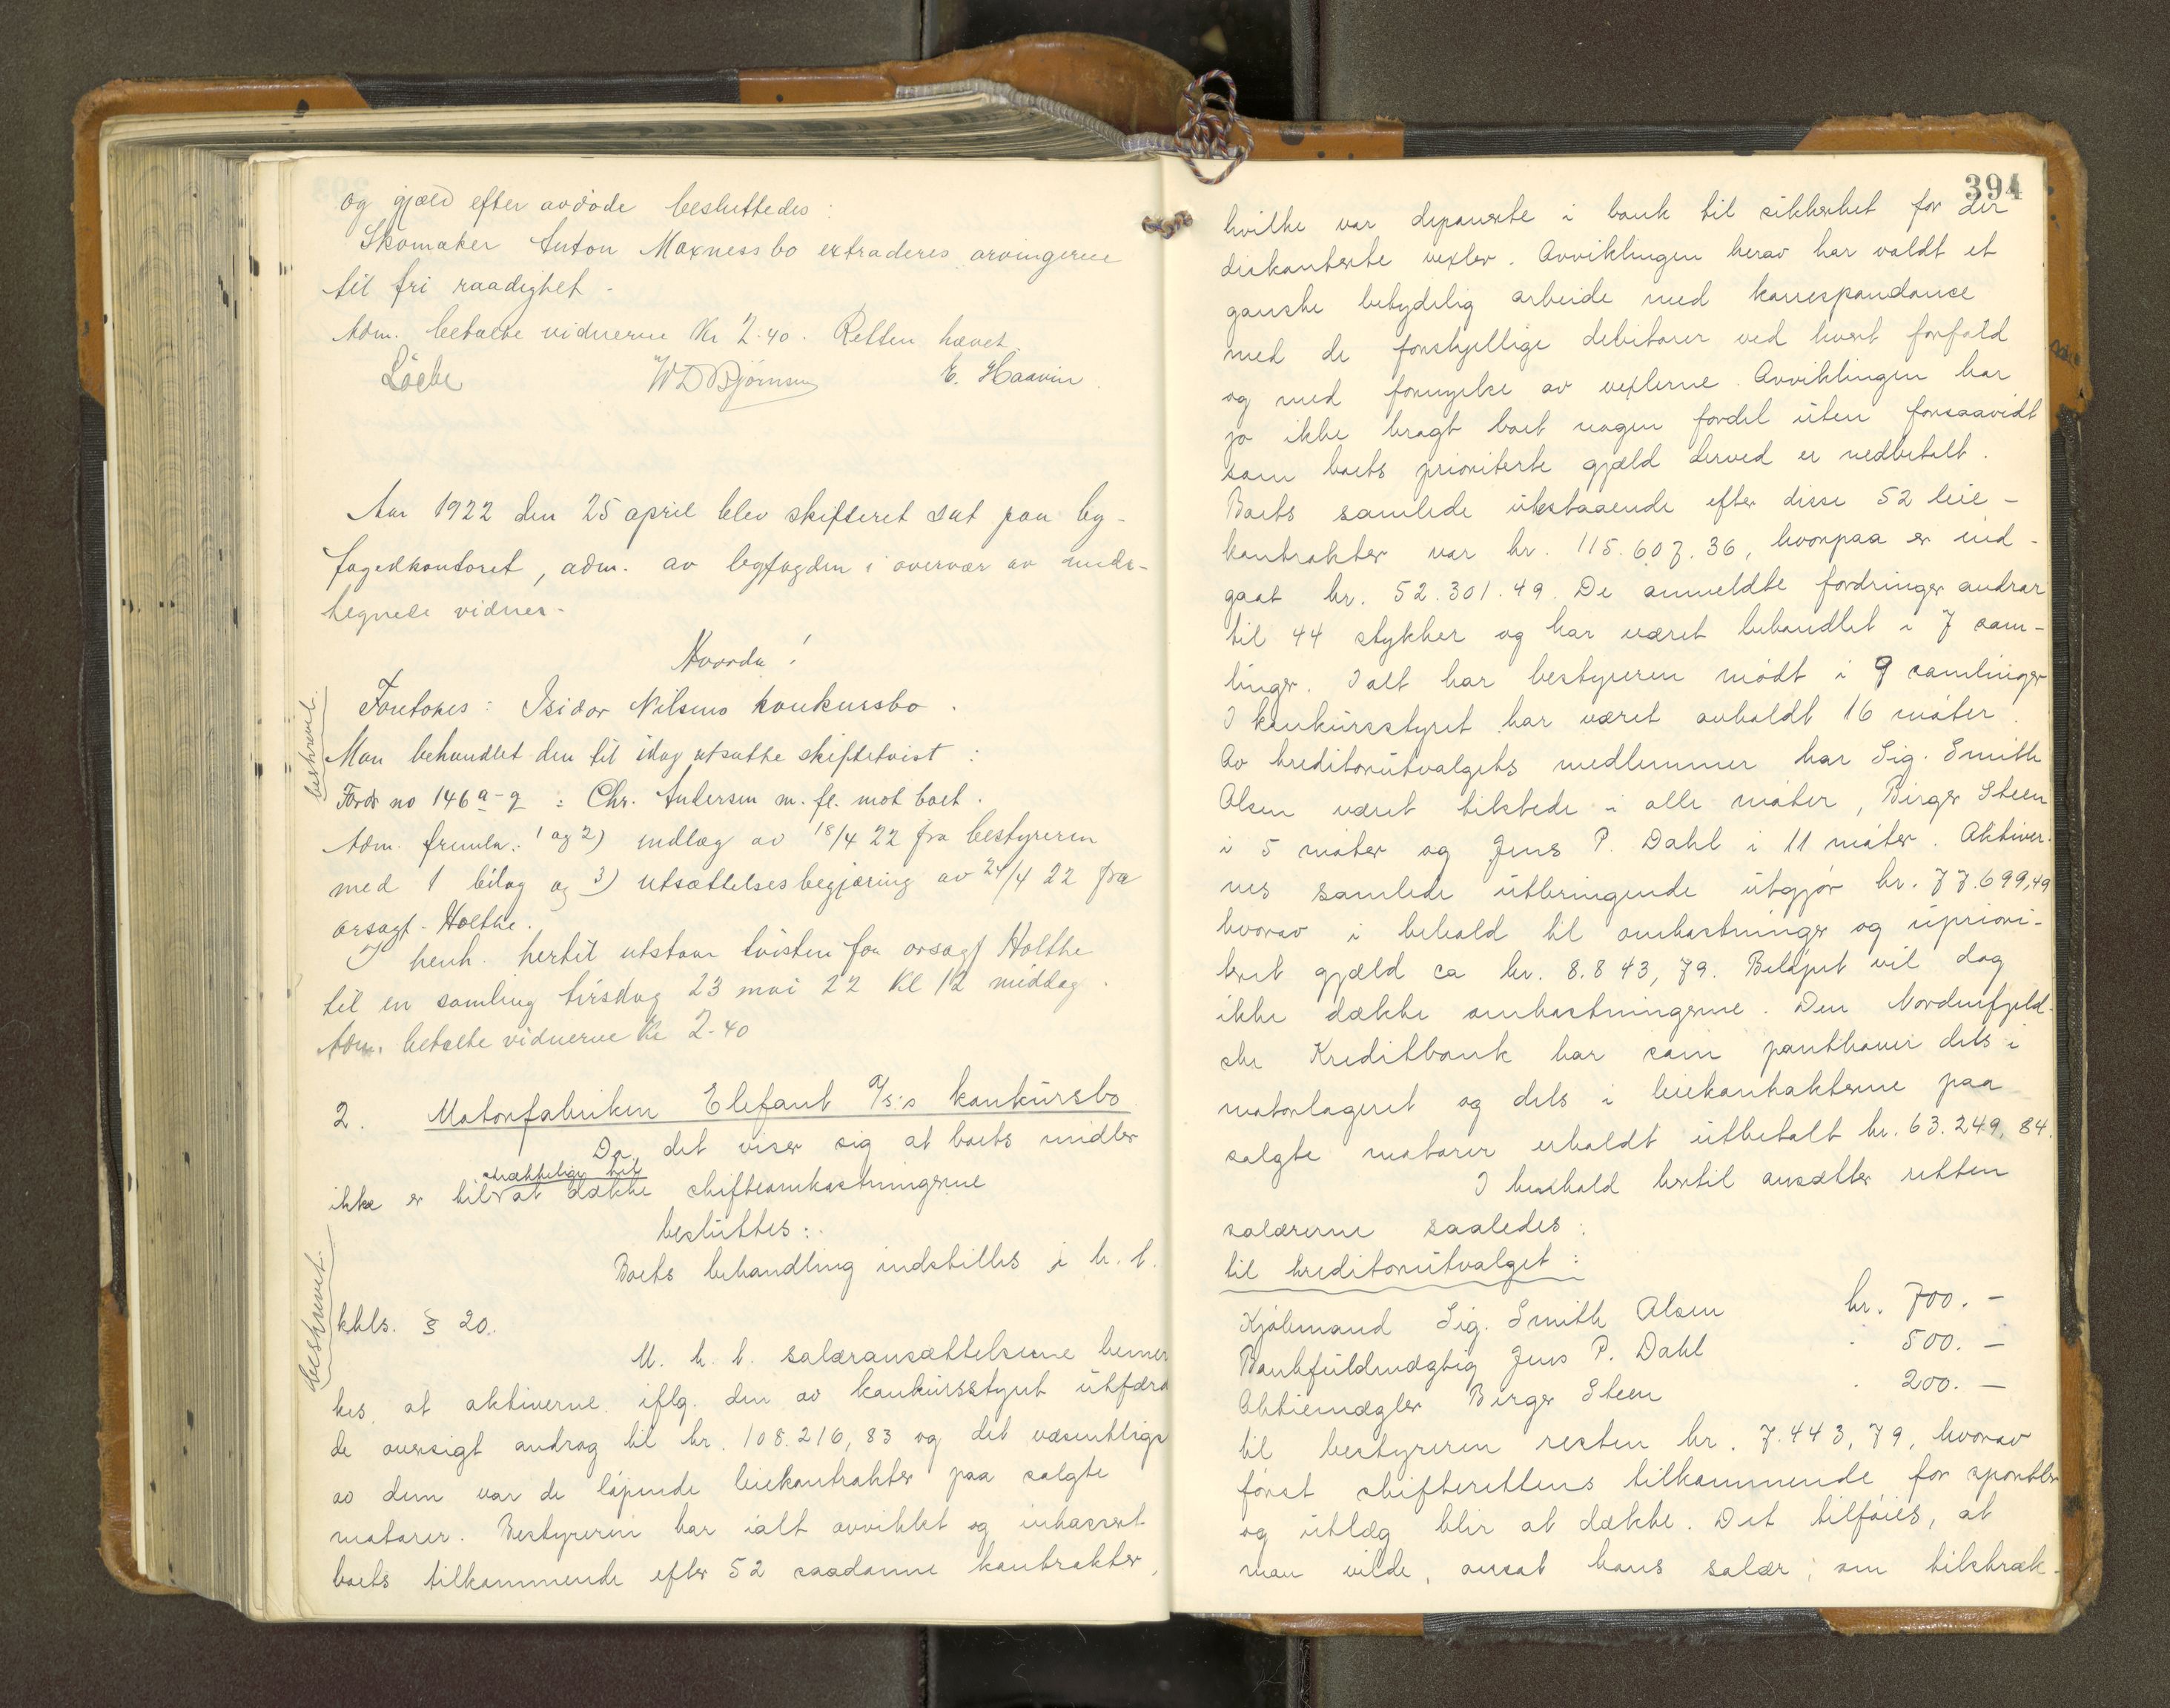 og gjæld efter avdøde besluttedes:
Skomaker Anton Moxness bo extraderes arvingerne
til fri raadighet.
Adm. betalte vidnerne Kr 2.40. Retten hævet.
Löche W D Bjørnsen E. Haavin.
Aar 1922 den 25 april blev skifteret sat paa by-
fogedkontoret, adm. av byfogden i overvær av under-
tegnede vidner.
Hvorda!
Foretokes: Isidor Nilsens konkursbo.
beskrevet.
Man behandlet den til idag utsatte skiftetvist:
Fordr no 146 a-g: Chr. Andersen m. fl. mot boet.
Adm. freml.: 1 og 2) indlæg av 18/4 22 fra bestyreren
med 1 bilag og 3) utsættelsesbegjæring av 24/4 22 fra
orsagf. Holthe.
I henh. hertil utstaar tvisten for orsagf Holthe
til en samling tirsdag 23 mai 22 Kl 12 middag.
Adm. betalte vidnerne Kr 2.40
2. Motorfabriken Elefant A/S's konkursbo
Da det viser sig at boets midler
ikke er tilstrækkelige til at dække skifteomkostningerne
besluttes:
Boets behandling indstilles i h. t.
beskrevet.
kkls. § 20.
M. h. t. salæransættelserne bemer
kes, at aktiverne iflg. den av konkursstyret utfærdi
de oversigt androg til kr. 108.216,83 og det væsentligs
av dem var de løpende leiekontrakter paa solgte
motorer. Bestyreren har ialt avviklet og inkassert
boets tilkommende efter 52 saadanne kontrakter,
394
hvilke var deponerte i bank til sikkerhet for der
diskonterte vexler. Avviklingen herav har voldt et
ganske betydelig arbeide med korrespondance
med de forskjellige debitorer ved hvert forfald
og med fornyelse av vexlerne. Avviklingen har
jo ikke bragt boet nogen fordel uten forsaavidt
som boets prioriterte gjæld derved er nedbetalt.
Boets samlede utestaaende efter disse 52 leie-
kontrakter var kr. 115.607.36, hvorpaa er ind-
gaat kr. 52.301.49. De anmeldte fordringer andrar
til 44 stykker og har været behandlet i 7 sam-
linger. I alt har bestyreren mødt i 9 samlinger
I konkursstyret har været avholdt 16 møter.
Av kreditorutvalgets medlemmer har Sig. Smith
Olsen været tilstede i alle møter, Birger Steen
i 5 møter og Jens P. Dahl i 11 møter. Aktiver-
nes samlede utbringende utgjør kr. 77.699,49
hvorav i behold til omkostninger og upriori-
tert gjæld ca kr. 8.843,79. Beløpet vil dog
ikke dække omkostningerne. Den Nordenfjeld-
ske Kreditbank har som panthaver dels i
motorlageret og dels i leiekontrakterne paa
solgte motorer erholdt utbetalt kr. 63.249,84.
I henhold hertil ansætter retten
salærerne saaledes:
til kreditorutvalget:
Kjøbmand Sig. Smith Olsen kr. 700.-
Bankfuldmægtig Jens P. Dahl " 500.-
Aktiemægler Birger Steen " 200.-
til bestyreren resten kr. 7.443,79, hvorav
først skifterettens tilkommende for sportler
og utlæg blir at dække. Det tilføies, at
man vilde, ansat hans salær, om tilstræk-